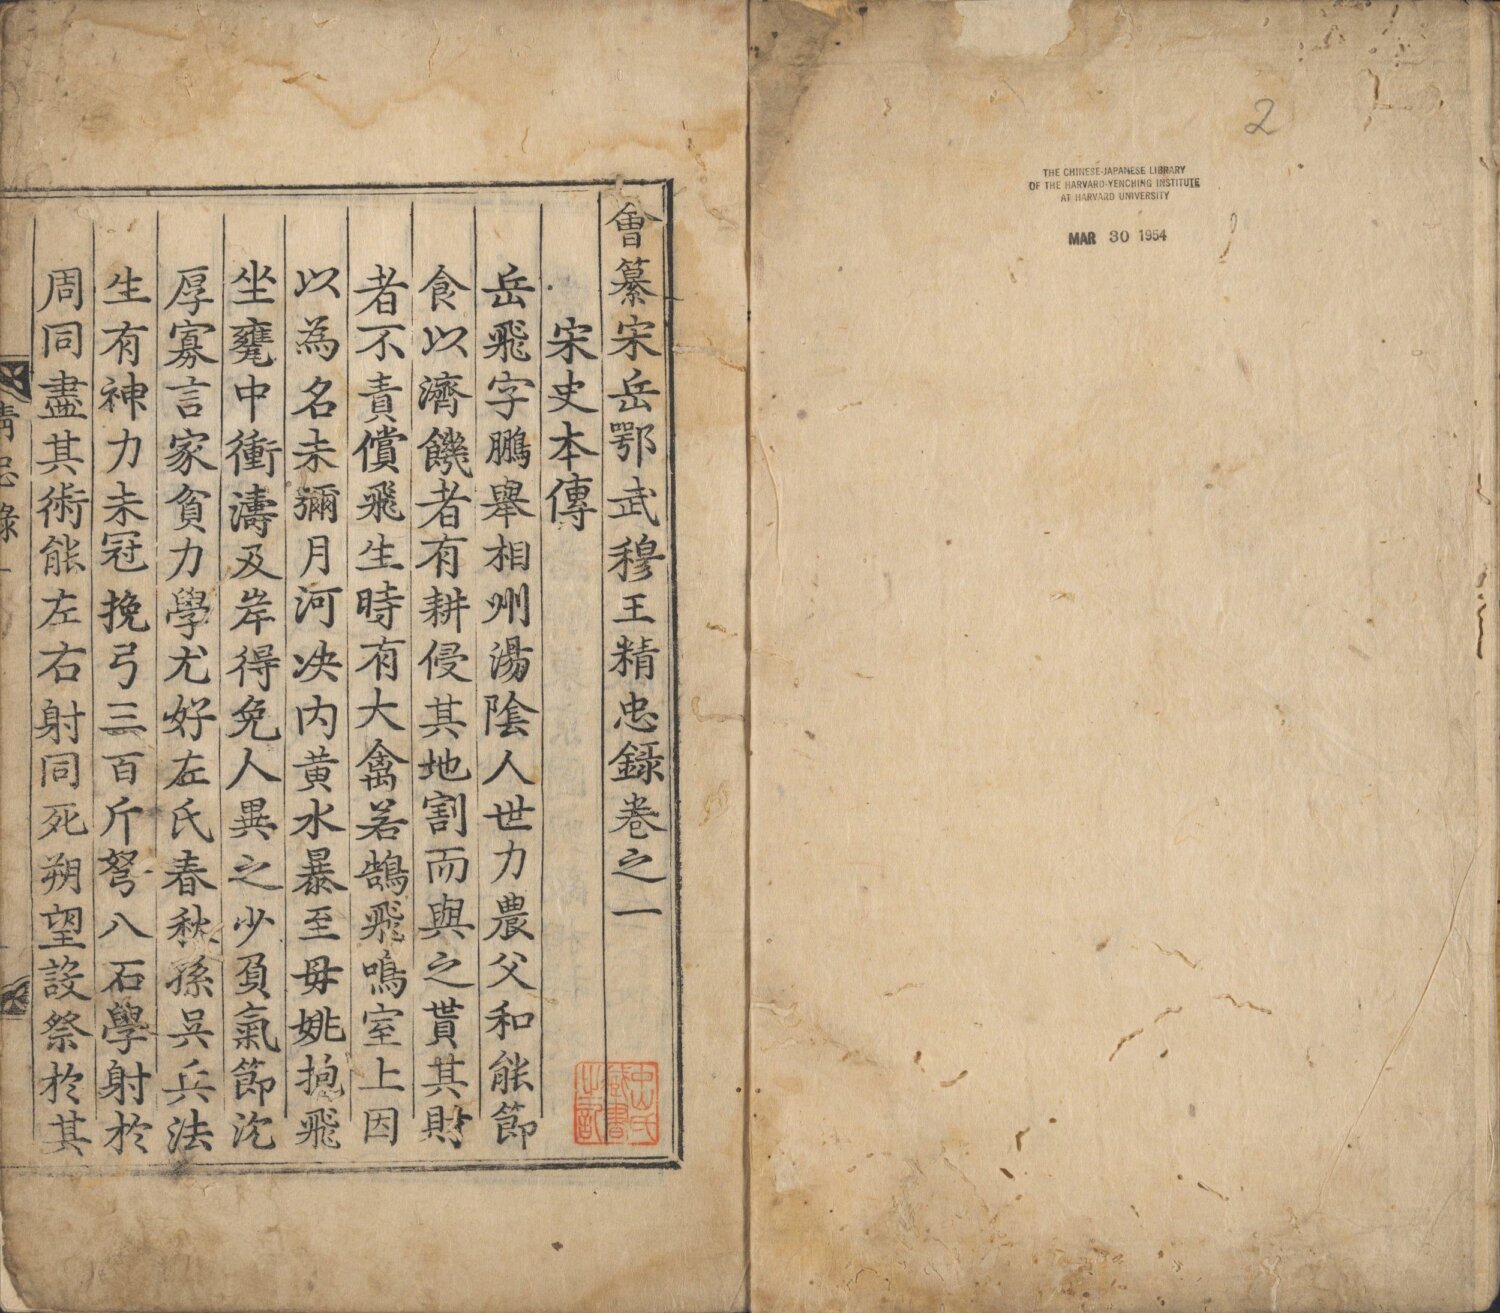 2
THE CHINESE-JAPANESE LIBRARY
OF THE HARVARD-YENCHING INSTITUTE
AT HARVARD UNIVERSITY
MAR 30 1954
會纂宋岳鄂武穆王精忠錄卷之一
宋史本傳
岳飛字鵬舉相州湯陰人世力農父和能節
食以濟饑者有耕侵其地割而與之貰其財
者不責償飛生時有大禽若鵠飛鳴室上因
以為名未彌月河决内黄水暴至母姚抱飛
坐甕中衝濤及岸得免人異之少負氣節沉
厚寡言家貧力學尤好左氏春秋孫吳兵法
生有神力未冠挽弓三百斤弩八石學射於
周同盡其術能左右射同死朔望設祭於其
精忠錄一
中山氏
藏書
之記